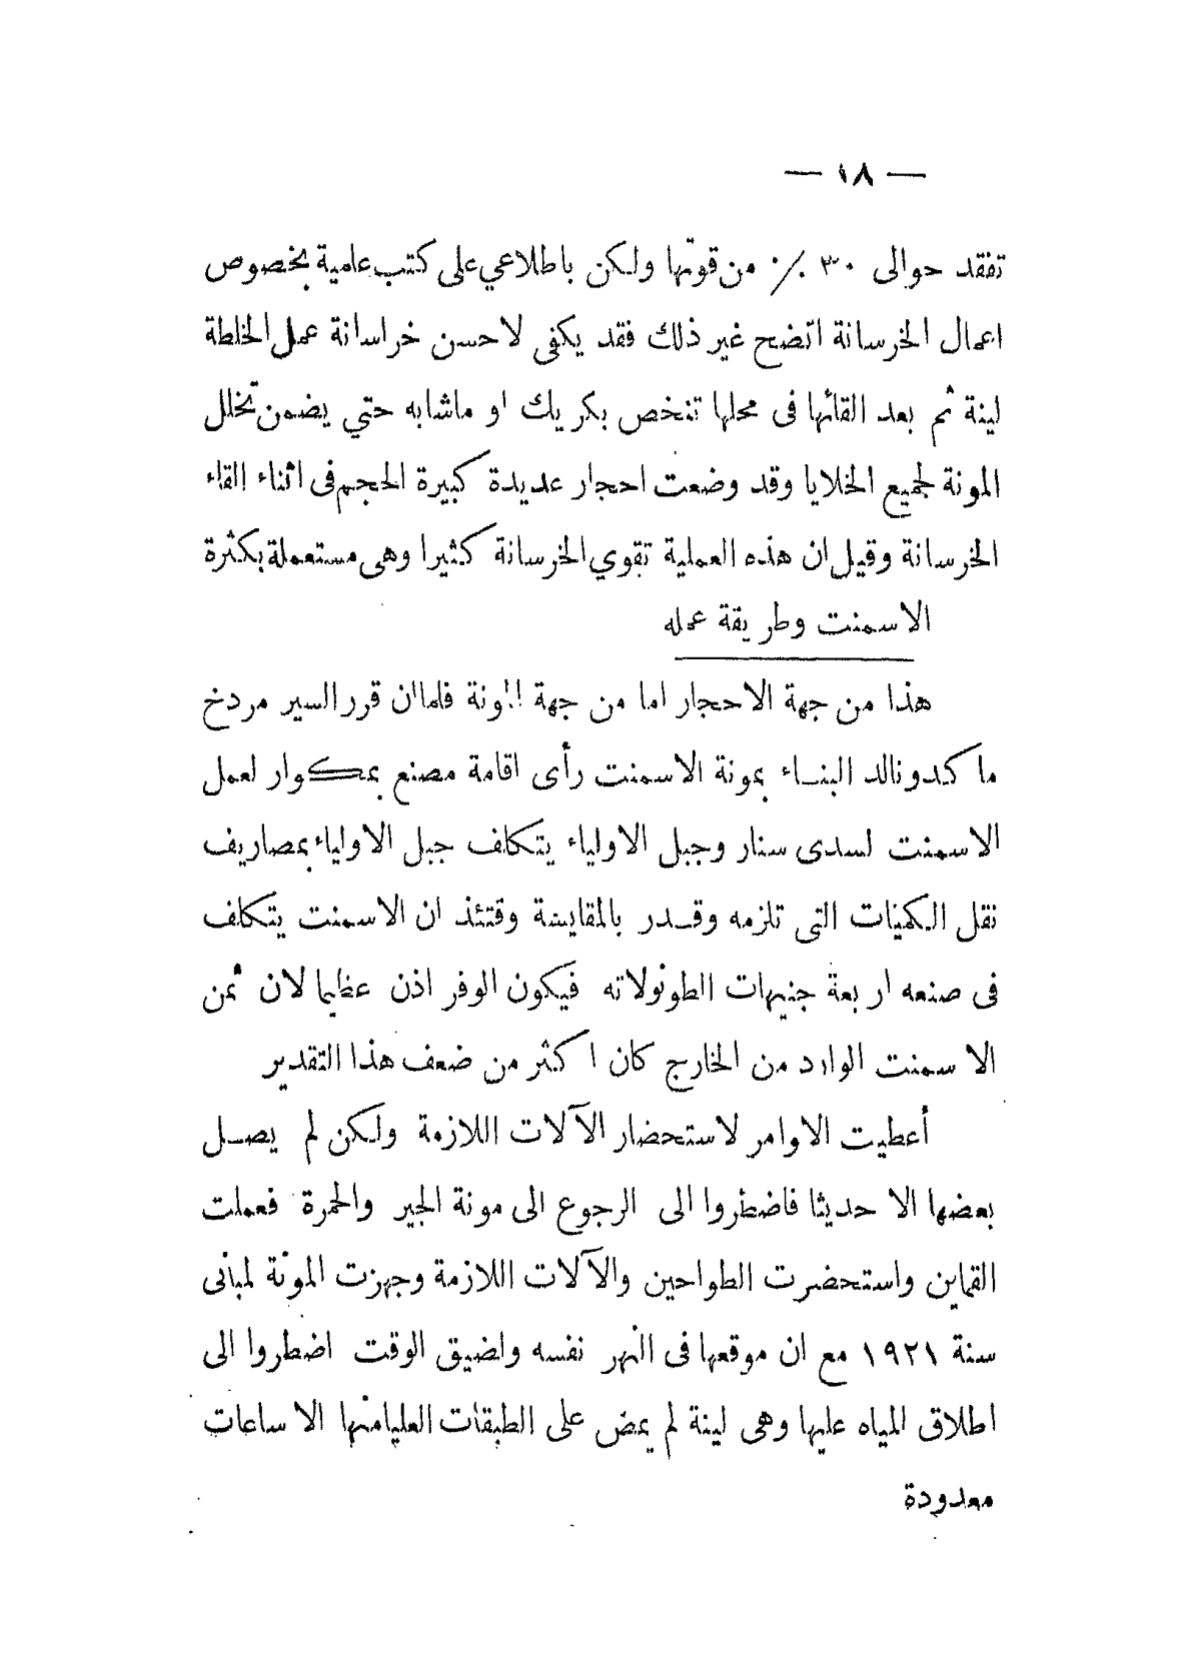 — ١٨ —
تفقد حوالى ٣٠ ./٠ من قوتها ولكن باطلاعي على كتب علمية بخصوص
اعمال الخرسانة اتضح غير ذلك فقد يكفى لاحسن خراسانة عمل الخلطة
لينة ثم بعد القائها فى محلها تنخص بكريك او ماشابه حتي يضمن تخلل
المونة لجميع الخلايا وقد وضعت احجار عديدة كبيرة الحجم فى اثناء القاء
الخرسانة وقيل ان هذه العملية تقوي الخرسانة كثيرا وهى مستعملة بكثرة
الاسمنت وطريقة عمله
هذا من جهة الاحجار اما من جهة المونة فلما ان قرر السير مردخ
ماكدونالد البناء بمونة الاسمنت رأى اقامة مصنع بمكوار لعمل
الاسمنت لسدى سنار وجبل الاولياء يتكلف جبل الاولياء بمصاريف
نقل الكميات التى تلزمه وقدر بالمقايسة وقتئذ ان الاسمنت يتكلف
فى صنعه اربعة جنيهات الطونولاته فيكون الوفر اذن عظيما لان ثمن
الاسمنت الوارد من الخارج كان اكثر من ضعف هذا التقدير
أعطيت الاوامر لاستحضار الآلات اللازمة ولكن لم يصل
بعضها الا حديثا فاضطروا الى الرجوع الى مونة الجير والحمرة فعملت
القماين واستحضرت الطواحين والآلات اللازمة وجهزت المونة لمبانى
سنة ١٩٢١ مع ان موقعها فى النهر نفسه ولضيق الوقت اضطروا الى
اطلاق المياه عليها وهى لينة لم يمض على الطبقات العليا منها الا ساعات
معدودة